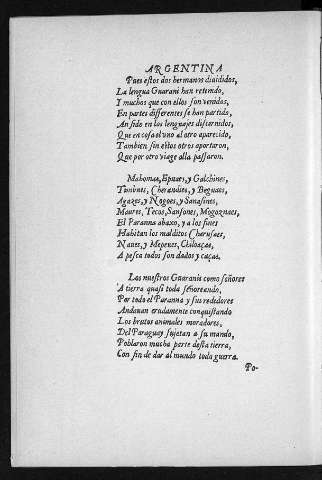 ARGENTINA
Pues estos dos hermanos diuididos,
La lengua Guarani han retenido,
I muchos que con ellos son venidos,
En partes differentes se han partido,
An sido en los lenguajes discernidos,
Que en cosa el uno al otro aparecido,
Tambien sin estos otros aportaron,
Que por otro viage alla passaron.
Mahomas, Epuaes, y Galchines,
Timbues, Cherandies, y Beguaes,
Agazes, y Nogoes, y Sanasines,
Maures, Tecos, Sansones, Mogoznaes,
El Paranna abaxo, y a los fines
Habitan los malditos Cheruaes,
Naues, y Mepenes, Chiloaças,
A pesca todos son dados y caças.
Los nuestros Guaranis como señores
A tierra quasi toda señoreando,
Por todo el Paranna y sus rededores
Andauan crudamente conquistando
Los brutos animales moradores,
Del Paraguay sujetan a su mando,
Poblaron mucha parte desta tierra,
Con fin de dar al mundo toda guerra.
Po-